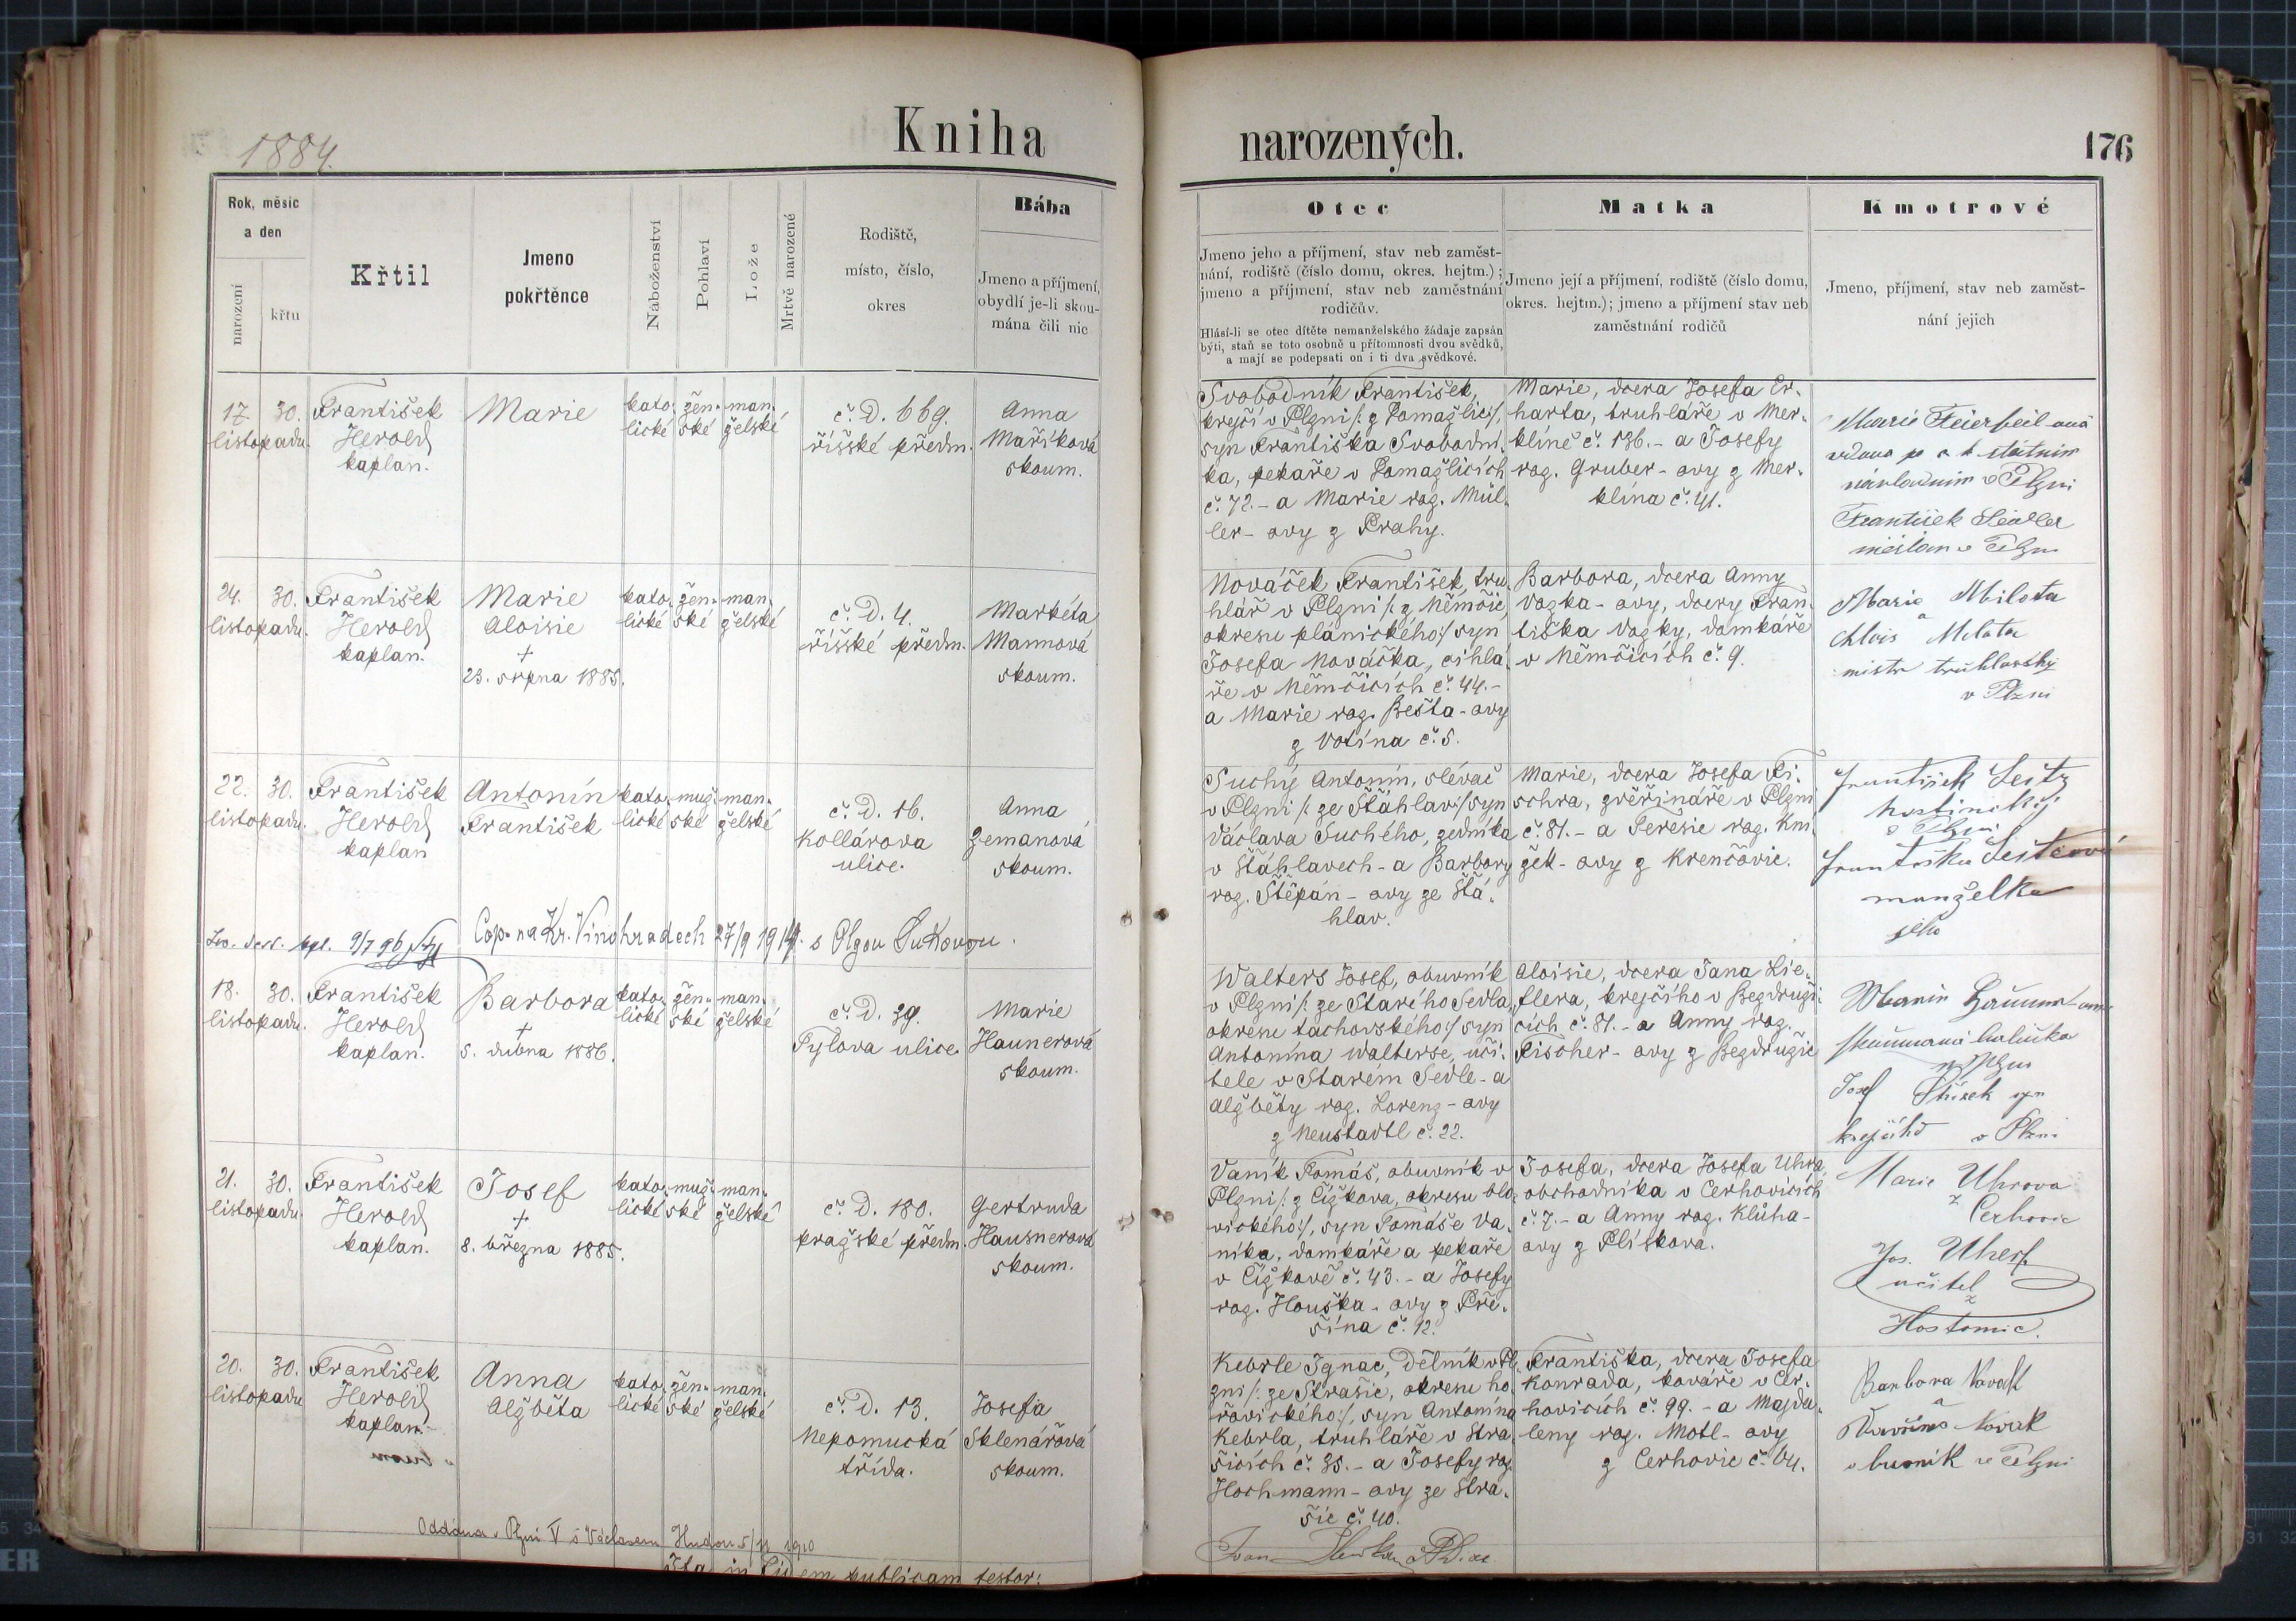 1884.
Kniha
narozených.
176
Rok, měsíc
a den
narození
křtu
Křtil
Jmeno
pokřtěnce
Náboženství
Pohlaví
Lože
Mrtvě narozené
Rodiště,
místo, číslo,
okres
Bába
Jmeno a příjmení,
obydlí je-li skou-
mána čili nic
Otec
Jmeno jeho a příjmení, stav neb zaměst-
nání, rodiště (číslo domu, okres. hejtm.);
jmeno a příjmení, stav neb zaměstnání
rodičův.
Hlásí-li se otec dítěte nemanželského žádaje zapsán
býti, staň se toto osobně u přítomnosti dvou svědků,
a mají se podepsati on i ti dva svědkové.
Matka
Jmeno její a příjmení, rodiště (číslo domu,
okres. hejtm.); jmeno a příjmení stav neb
zaměstnání rodičů
Kmotrové
Jmeno, příjmení, stav neb zaměst-
nání jejich
17. 30.
listopadu.
František
Herold
kaplan.
Marie
kato-
lické
žen-
ské
man-
želské
č. D. 669.
říšské předm.
Anna
Maříková
skoum.
Svobodník František,
krejčí v Plzni /: z Domažlic :/,
syn Františka Svobodní-
ka, pekaře v Domažlicích
č. 72. - a Marie roz. Mül-
ler - ovy z Prahy.
Marie, dcera Josefa Er-
harta, truhláře v Mer-
klíně č. 136. - a Josefy
roz. Gruber - ovy z Mer-
klína č. 41.
Marie
vdova po
v Plzni
František
v Plzni
24. 30.
listopadu.
František
Herold
kaplan.
Marie
Aloisie
+
23. srpna 1885.
kato-
lické
žen-
ské
man-
želské
č. D. 4.
říšské předm.
Markéta
Mannová
skoum.
Nováček František, tru-
hlář v Plzni /: z Němčic,
okresu plánického :/ syn
Josefa Nováčka, cihlá-
ře v Němčicích č. 44. -
a Marie roz. Bešta - ovy
z Votína č. 5.
Barbora, dcera Anny
Vozka - ovy, dcery Fran-
tiška Vozky, domkáře
v Němčicích č. 9.
Marie Milota
a
Alois Milota
mistr truhlářský
v Plzni
22. 30.
listopadu.
František
Herold
kaplan
Antonín
František
kato-
lické
muž-
ské
man-
želské
č. D. 16.
Kollárova
ulice.
Anna
Zemanová
skoum.
Suchý Antonín, slévač
v Plzni /: ze Štáhlav :/ syn
Václava Suchého, zedníka
v Štáhlavech - a Barbory
roz. Štěpán - ovy ze Štá-
hlav.
Marie, dcera Josefa Fi-
schra, zvěřináře v Plzni
č. 81. - a Terezie roz. Kní-
žek - ovy z Krenčovic.
František Seitz
hostinský
v Plzni
Františka Seitzová
manželka
jeho
9/7 96
Cop. na Kr. Vinohradech 27/9 1914. s Olgou Sukovou.
18. 30.
listopadu.
František
Herold
kaplan.
Barbora
+
5. dubna 1886.
kato-
lické
žen-
ské
man-
želské
č. D. 39.
Tylova ulice.
Marie
Haunerová
skoum.
Walters Josef, obuvník
v Plzni /: ze Starého Sedla,
okresu tachovského :/ syn
Antonína Walterse, uči-
tele v Starém Sedle - a
Alžběty roz. Lorenz - ovy
z Neustadtl č. 22.
Aloisie, dcera Jana Lie-
flera, krejčího v Bezdruži-
cích č. 81. - a Anny roz.
Fischer - ovy z Bezdružic
v Plzni
Josef syn
krejčího v Plzni
21. 30.
listopadu.
František
Herold
kaplan.
Josef
+
8. března 1885.
kato-
lické
muž-
ské
man-
želské
č. D. 180.
pražské předm.
Gertruda
Hausnerová
skoum.
Vaník Tomáš, obuvník v
Plzni /: z Čížkova, okresu blo-
vického :/, syn Tomáše Va-
níka, domkáře a pekaře
v Čížkově č. 43. - a Josefy
roz. Houška - ovy z Pře-
šína č. 12.
Josefa, dcera Josefa Uhra,
obchodníka v Cerhovicích
č. 7. - a Anny roz. Klůha -
ovy z Plískova.
Marie Uhrova
z
Cerhovic
Jos. Uher
učitel
z
Hostomic.
20. 30.
listopadu
František
Herold
kaplan.
Anna
Alžběta
kato-
lické
žen-
ské
man-
želské
č. D. 13.
Nepomucká
třída.
Josefa
Sklenářová
skoum.
Kebrle Ignac, dělník v Pl-
zni /: ze Strašic, okresu ho-
řovického :/, syn Antonína
Kebrla, truhláře v Stra-
šicích č. 35. - a Josefy roz.
Hochmann - ovy ze Stra-
šic č. 40.
Františka, dcera Josefa
Konrada, kováře v Cer-
hovicích č. 99. - a Majda-
leny roz. Motl - ovy
z Cerhovic č. 64.
Barbora Novák
a
Novák
obuvník v Plzni
Oddána v Plzni s Václavem Hudou 5/11 1910
Ita in fidem publicam testor: